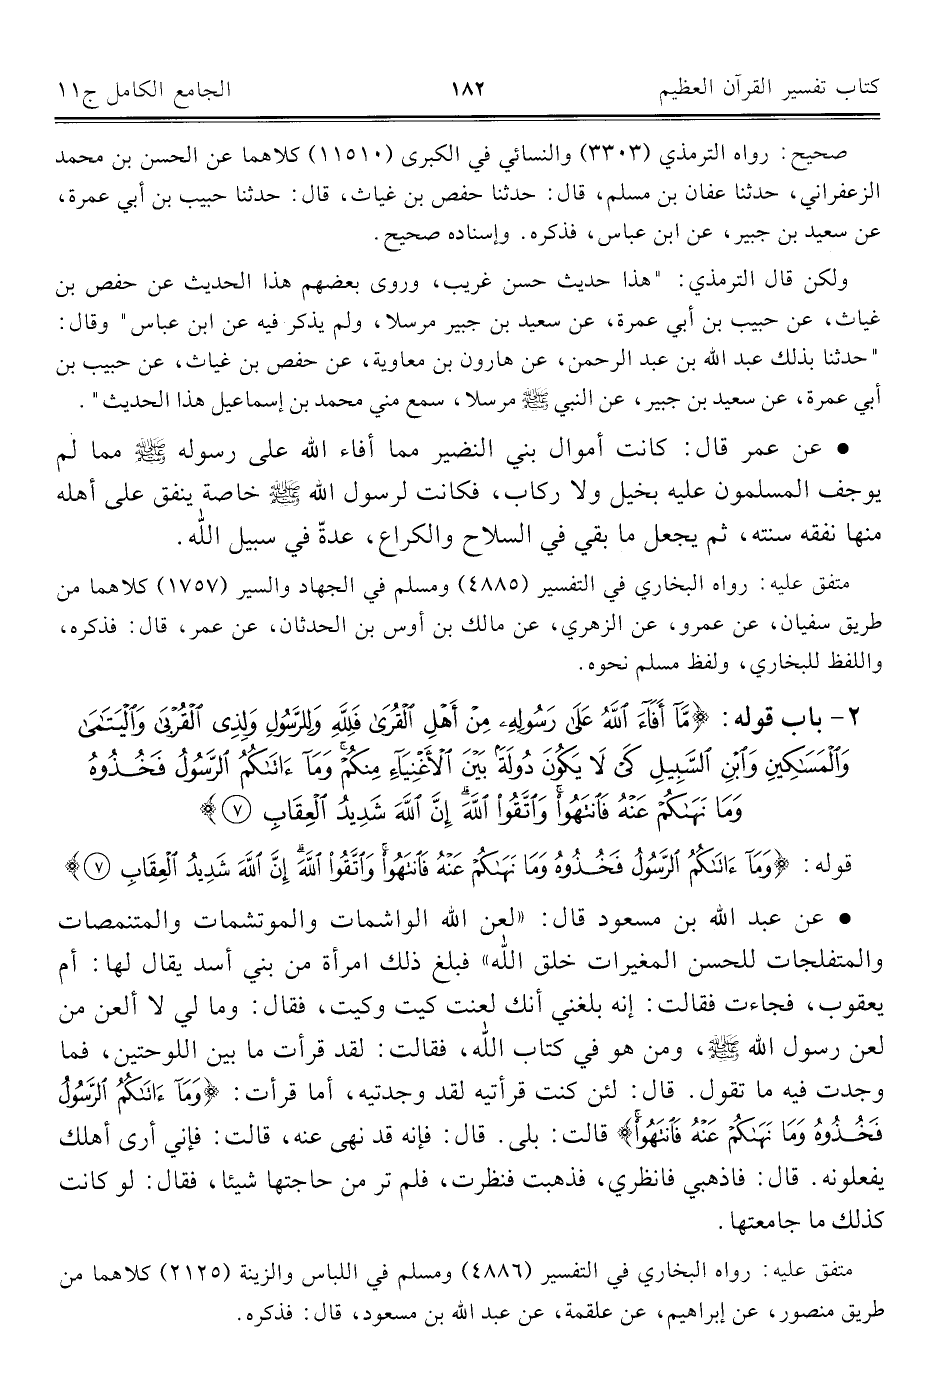 كتاب تفسير القرآن العظيم ١٨٢ الجامع الكامل ج١١
صحيح: رواه الترمذي (٣٣٠٣) والنسائي في الكبرى (١١٥١٠) كلاهما عن الحسن بن محمد
الزعفراني، حدثنا عفان بن مسلم، قال: حدثنا حفص بن غياث، قال: حدثنا حبيب بن أبي عمرة،
عن سعيد بن جبير، عن ابن عباس، فذكره. وإسناده صحيح.
ولكن قال الترمذي: "هذا حديث حسن غريب، وروى بعضهم هذا الحديث عن حفص بن
غياث، عن حبيب بن أبي عمرة، عن سعيد بن جبير مرسلا، ولم يذكر فيه عن ابن عباس" وقال:
"حدثنا بذلك عبد الله بن عبد الرحمن، عن هارون بن معاوية، عن حفص بن غياث، عن حبيب بن
أبي عمرة، عن سعيد بن جبير، عن النبي ﷺ مرسلا، سمع مني محمد بن إسماعيل هذا الحديث".
• عن عمر قال: كانت أموال بني النضير مما أفاء الله على رسوله ﷺ مما لم
يوجف المسلمون عليه بخيل ولا ركاب، فكانت لرسول الله ﷺ خاصة ينفق على أهله
منها نفقه سنته، ثم يجعل ما بقي في السلاح والكراع، عدةّ في سبيل الله.
متفق عليه: رواه البخاري في التفسير (٤٨٨٥) ومسلم في الجهاد والسير (١٧٥٧) كلاهما من
طريق سفيان، عن عمرو، عن الزهري، عن مالك بن أوس بن الحدثان، عن عمر، قال: فذكره،
واللفظ للبخاري، ولفظ مسلم نحوه.
٢- باب قوله: ﴿مَّآ أَفَآءَ ٱللَّهُ عَلَىٰ رَسُولِهِۦ مِنْ أَهْلِ ٱلْقُرَىٰ فَلِلَّهِ وَلِلرَّسُولِ وَلِذِى ٱلْقُرْبَىٰ وَٱلْيَتَٰمَىٰ
وَٱلْمَسَٰكِينِ وَٱبْنِ ٱلسَّبِيلِ كَىْ لَا يَكُونَ دُولَةًۢ بَيْنَ ٱلْأَغْنِيَآءِ مِنكُمْ ۚ وَمَآ ءَاتَىٰكُمُ ٱلرَّسُولُ فَخُذُوهُ
وَمَا نَهَىٰكُمْ عَنْهُ فَٱنتَهُوا۟ ۚ وَٱتَّقُوا۟ ٱللَّهَ ۖ إِنَّ ٱللَّهَ شَدِيدُ ٱلْعِقَابِ ٧﴾
قوله: ﴿وَمَآ ءَاتَىٰكُمُ ٱلرَّسُولُ فَخُذُوهُ وَمَا نَهَىٰكُمْ عَنْهُ فَٱنتَهُوا۟ ۚ وَٱتَّقُوا۟ ٱللَّهَ ۖ إِنَّ ٱللَّهَ شَدِيدُ ٱلْعِقَابِ ٧﴾
• عن عبد الله بن مسعود قال: «لعن الله الواشمات والموتشمات والمتنمصات
والمتفلجات للحسن المغيرات خلق الله» فبلغ ذلك امرأة من بني أسد يقال لها: أم
يعقوب، فجاءت فقالت: إنه بلغني أنك لعنت كيت وكيت، فقال: وما لي لا ألعن من
لعن رسول الله ﷺ، ومن هو في كتاب الله، فقالت: لقد قرأت ما بين اللوحتين، فما
وجدت فيه ما تقول. قال: لئن كنت قرأتيه لقد وجدتيه، أما قرأت: ﴿وَمَآ ءَاتَىٰكُمُ ٱلرَّسُولُ
فَخُذُوهُ وَمَا نَهَىٰكُمْ عَنْهُ فَٱنتَهُوا۟ ۚ﴾ قالت: بلى. قال: فإنه قد نهى عنه، قالت: فإني أرى أهلك
يفعلونه. قال: فاذهبي فانظري، فذهبت فنظرت، فلم تر من حاجتها شيئا، فقال: لو كانت
كذلك ما جامعتها.
متفق عليه: رواه البخاري في التفسير (٤٨٨٦) ومسلم في اللباس والزينة (٢١٢٥) كلاهما من
طريق منصور، عن إبراهيم، عن علقمة، عن عبد الله بن مسعود، قال: فذكره.